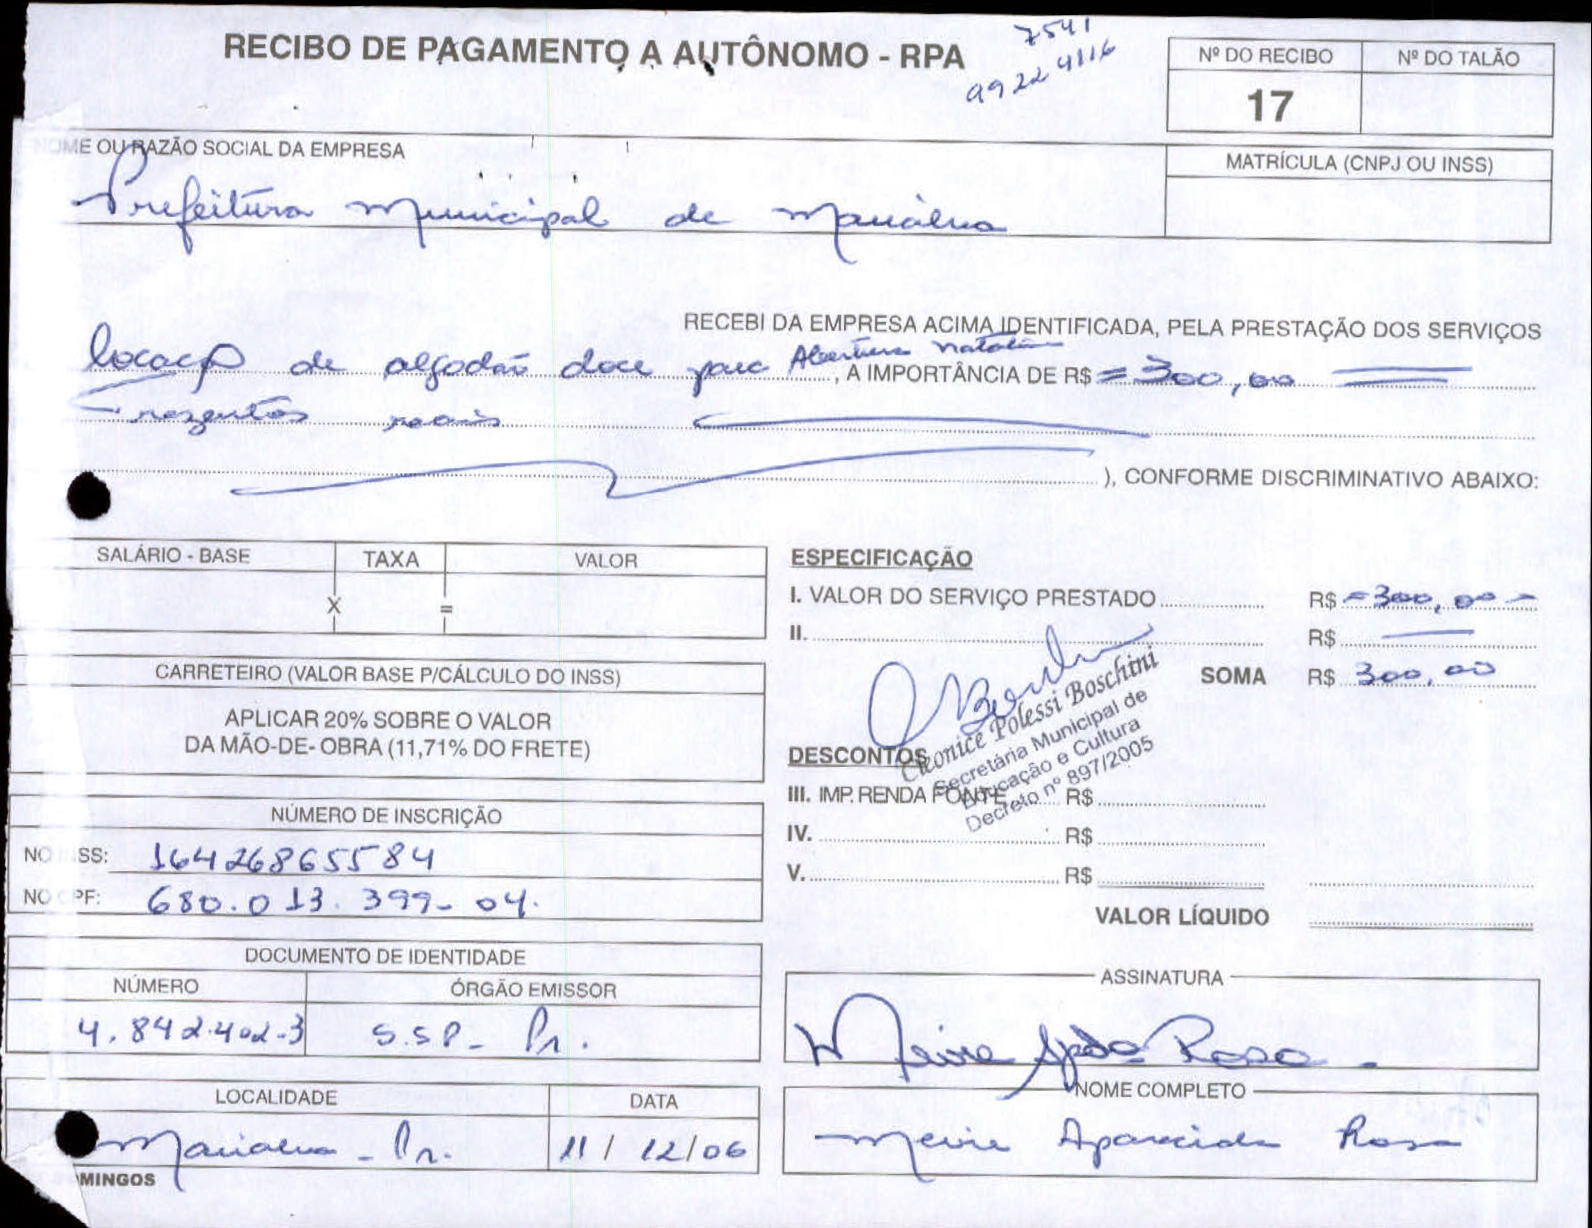 7541
9922 4116
RECIBO DE PAGAMENTO A AUTÔNOMO - RPA
Nº DO RECIBO Nº DO TALÃO
17
NOME OU RAZÃO SOCIAL DA EMPRESA
MATRÍCULA (CNPJ OU INSS)
Prefeitura Municipal de Marialva
RECEBI DA EMPRESA ACIMA IDENTIFICADA, PELA PRESTAÇÃO DOS SERVIÇOS
locação de algodão doce para Abertura natalina, A IMPORTÂNCIA DE R$ =300,00
Trezentos reais
), CONFORME DISCRIMINATIVO ABAIXO:
SALÁRIO - BASE TAXA VALOR
X =
CARRETEIRO (VALOR BASE P/CÁLCULO DO INSS)
APLICAR 20% SOBRE O VALOR
DA MÃO-DE-OBRA (11,71% DO FRETE)
NÚMERO DE INSCRIÇÃO
NO INSS: 16426865584
NO CPF: 680.013.399-04.
DOCUMENTO DE IDENTIDADE
NÚMERO ÓRGÃO EMISSOR
4.842.402-3 S.SP- Pr.
LOCALIDADE DATA
Marialva - Pr. 11/12/06
MINGOS
ESPECIFICAÇÃO
I. VALOR DO SERVIÇO PRESTADO R$ =300,00-
II. R$
SOMA R$ 300,00
Cleonice Polessi Boschini
Secretária Municipal de
Educação e Cultura
Decreto nº 897/2005
DESCONTOS
III. IMP. RENDA FONTE R$
IV. R$
V. R$
VALOR LÍQUIDO
ASSINATURA
Meire Apda Rosa
NOME COMPLETO
Meire Aparecida Rosa